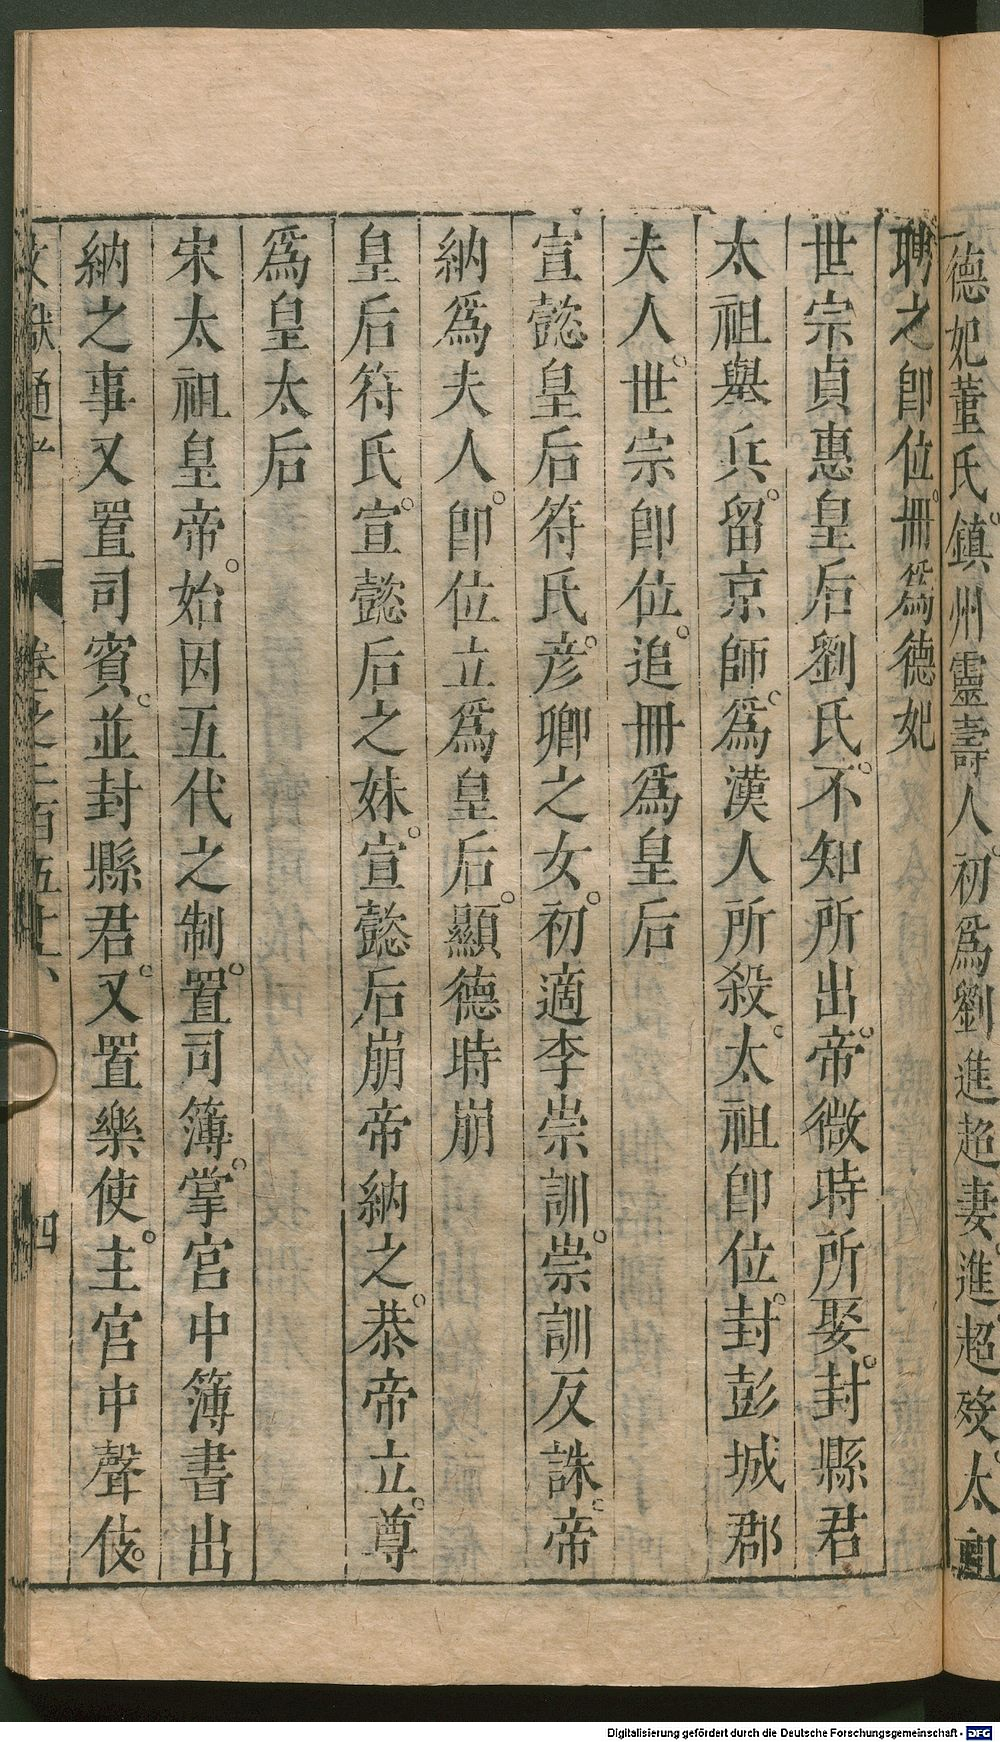 德妃董氏。鎮州靈壽人。初爲劉進超妻。進超歿。太祖
聘之卽位。冊爲德妃
世宗貞惠皇后劉氏。不知所出。帝微時所娶。封縣君
太祖舉兵。留京師。爲漢人所殺。太祖卽位。封彭城郡
夫人。世宗卽位。追冊爲皇后
宣懿皇后符氏。彥卿之女。初適李崇訓。崇訓反誅。帝
納爲夫人。卽位立爲皇后。顯德時崩
皇后符氏。宣懿后之妹。宣懿后崩帝納之。恭帝立。尊
爲皇太后
宋太祖皇帝。始因五代之制。置司簿。掌宮中簿書出
納之事又置司賓。並封縣君。又置樂使。主宮中聲伎。
文獻通考 卷之二百五十六 四
Digitalisierung gefördert durch die Deutsche Forschungsgemeinschaft - DFG